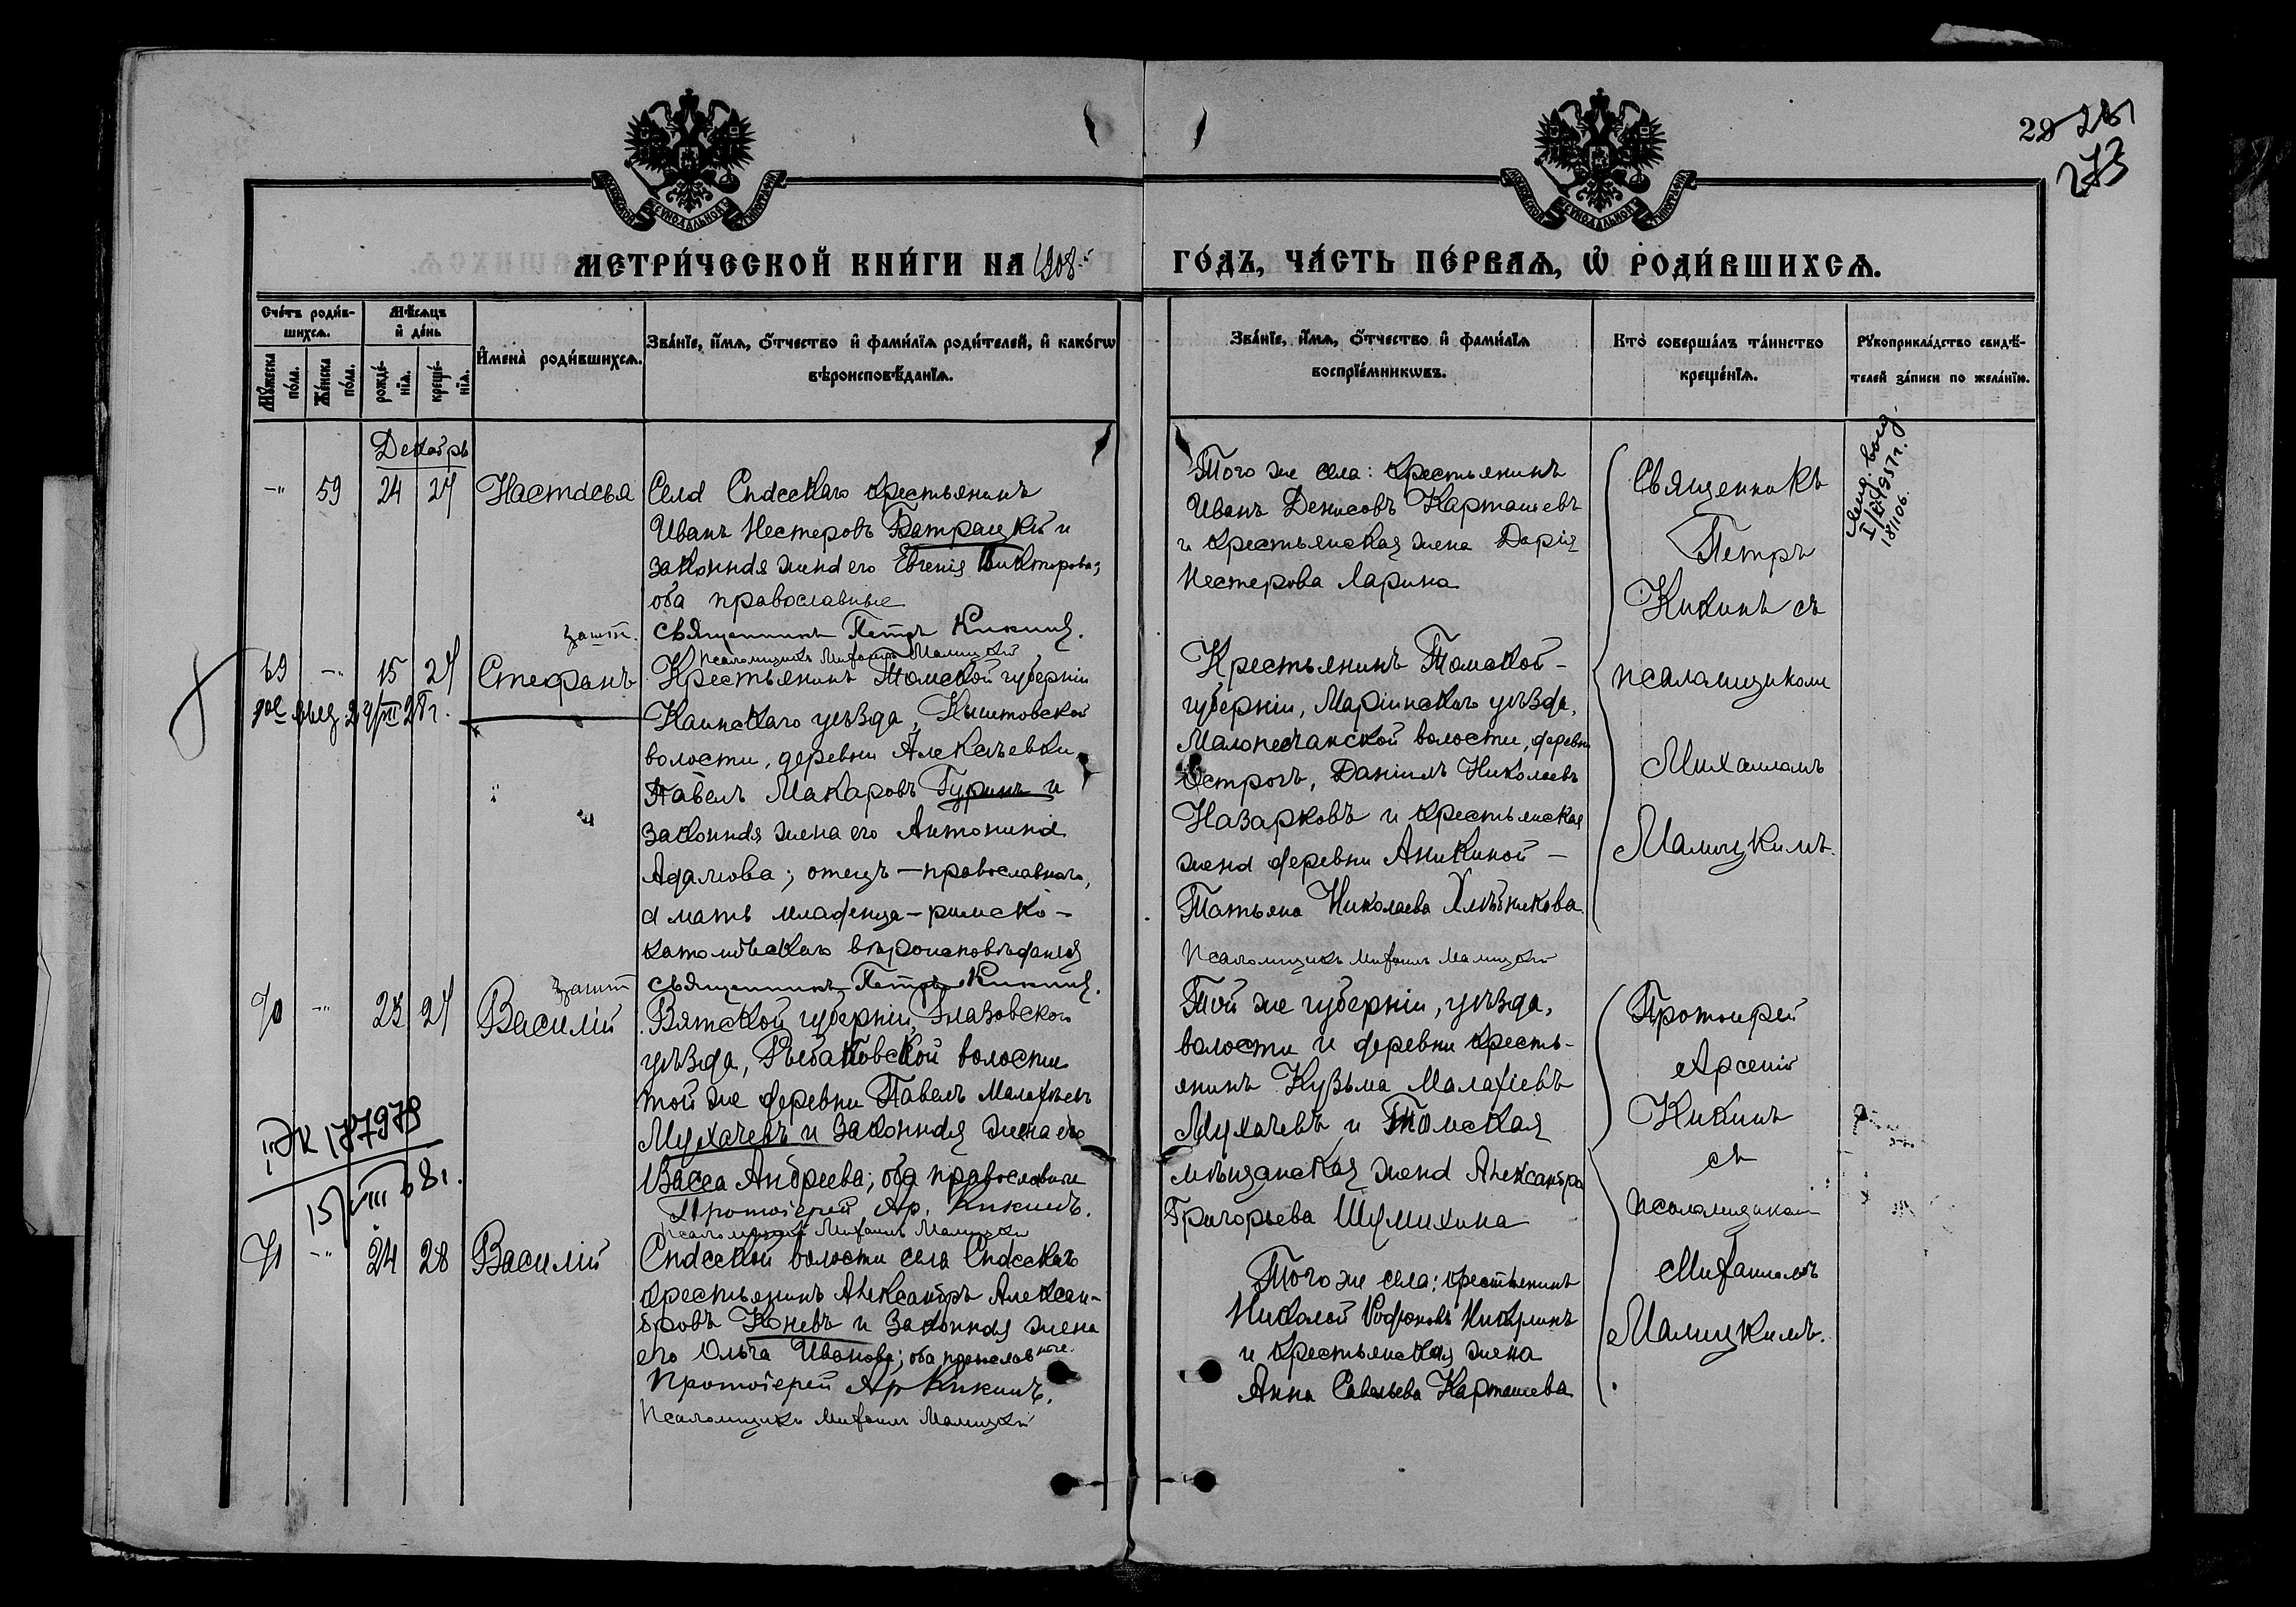 28 281
273
МЕТРИ́ЧЕСКОЙ КНИ́ГИ НА 1908.
ГО́ДЪ, ЧА́СТЬ ПЕ́РВАѦ, Ѡ҆ РОДИ́ВШИХСѦ.
Сче́тъ роди́в-
шихсѧ.
Мꙋ́жеска по́ла.
Же́нска по́ла.
Мѣ́сѧцъ
и҆ де́нь
рожде́-
нїѧ.
креще́-
нїѧ.
И҆мена̀ роди́вшихсѧ.
Зва́нїе, и҆́мѧ, ѻ҆́тчество и҆ фами́лїѧ роди́телей, и҆ како́гѡ
вѣроисповѣ́данїѧ.
Зва́нїе, и҆́мѧ, ѻ҆́тчество и҆ фами́лїѧ
воспрїе́мникѡвъ.
Кто̀ соверша́лъ та́инство
креще́нїѧ.
Рꙋкоприкла́дство свидѣ́-
телей за́писи по жела́нїю.
Декабрь
-"- 59 24 27 Настасья
Села Спасскаго крестьянинъ
Иванъ Нестеровъ Батрацкій и
законная жена его Евгенія Викторова;
оба православные
Священникъ Петръ Кикинъ.
Псаломщикъ Михаилъ Малицкій
Того же села: крестьянинъ
Иванъ Денисовъ Карташевъ
и крестьянская жена Дарія
Нестерова Ларина
Священникъ
Петръ
Кикинъ съ
псаломщикомъ
Михаиломъ
Малицкимъ.
69 -"- 15 27 Стефанъ
Крестьянинъ Томской губерніи
Каинскаго уѣзда, Кыштовской
волости, деревни Алексѣевки
Павелъ Макаровъ Гуринъ и
законная жена его Антонина
Адамова; отецъ - православнаго,
а мать младенца - римско-
католическаго вѣроисповѣданія
Священникъ Петръ Кикинъ.
Крестьянинъ Томской -
губерніи, Маріинскаго уѣзда,
Малопесчанской волости, деревни
Острогъ, Даніилъ Николаевъ
Назарковъ и крестьянская
жена деревни Аникиной -
Татьяна Николаева Хлѣбникова
Псаломщикъ Михаилъ Малицкій
70 -"- 23 27 Василій
Вятской губерніи, Глазовского
уѣзда, Рыбаковской волости
той же деревни Павелъ Малафіевъ
Мухачевъ и законная жена его
Васса Андреева; оба православные
Протоіерей Ар. Кикинъ.
Псаломщикъ Михаилъ Малицкій
Той же губерніи, уѣзда,
волости и деревни кресть-
янинъ Кузьма Малафіевъ
Мухачевъ и Томская
мѣщанская жена Александра
Григорьева Шумихина
Протоіерей
Арсеній
Кикинъ
съ
псаломщикомъ
Михаиломъ
Малицкимъ.
71 -"- 24 28 Василій
Спасской волости села Спасскаго
крестьянинъ Александръ Алексан-
дровъ Коневъ и законная жена
его Ольга Иванова; оба православные.
Протоіерей Ар Кикинъ.
Псаломщикъ Михаилъ Малицкій
Того же села: крестьянинъ
Николай Никулинъ
и крестьянская жена
Анна Савельева Карташева